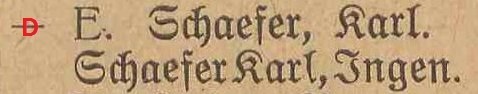 D E. Schaefer, Karl.
Schaefer Karl, Ingen.